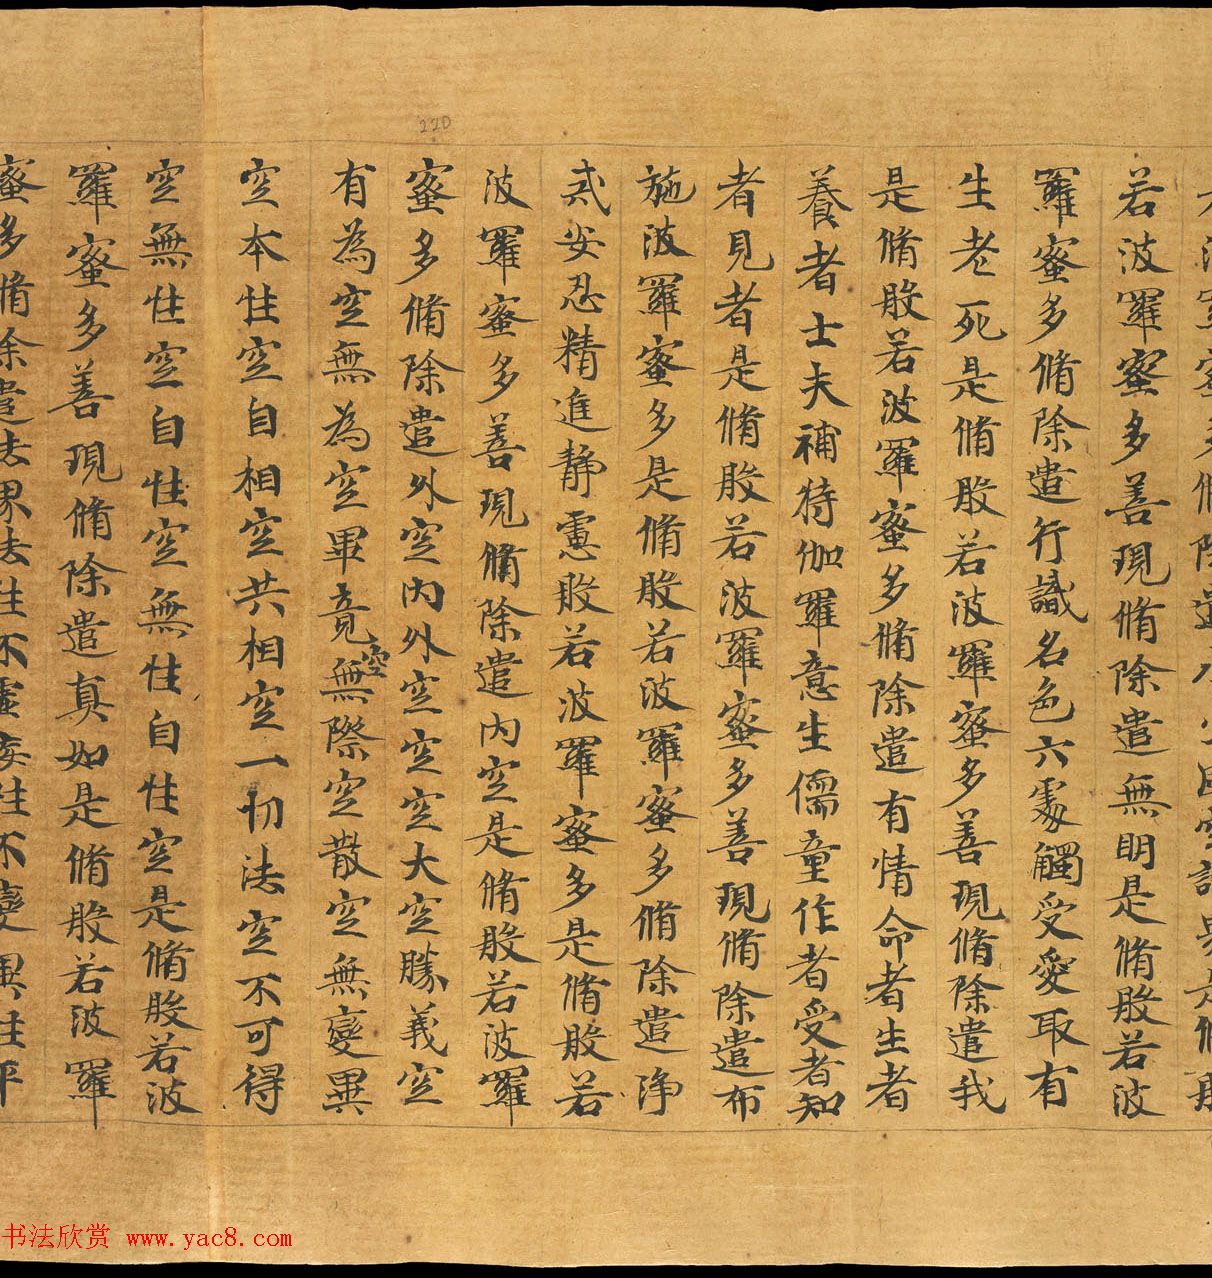 羅蜜多脩除遣
若波羅蜜多善現脩除遣無明是脩般若波
羅蜜多脩除遣行識名色六處觸受愛取有
生老死是脩般若波羅蜜多善現脩除遣我
是脩般若波羅蜜多脩除遣有情命者生者
養者士夫補特伽羅意生儒童作者受者知
者見者是脩般若波羅蜜多善現脩除遣布
施波羅蜜多是脩般若波羅蜜多脩除遣淨
戒安忍精進靜慮般若波羅蜜多是脩般若
波羅蜜多善現脩除遣內空是脩般若波羅
蜜多脩除遣外空內外空空空大空勝義空
有為空無為空畢竟空無際空散空無變異
空本性空自相空共相空一切法空不可得
空無性空自性空無性自性空是脩般若波
羅蜜多善現脩除遣真如是脩般若波羅
蜜多脩除遣法界法性不虛妄性不變異性平
220
书法欣赏 www.yac8.com